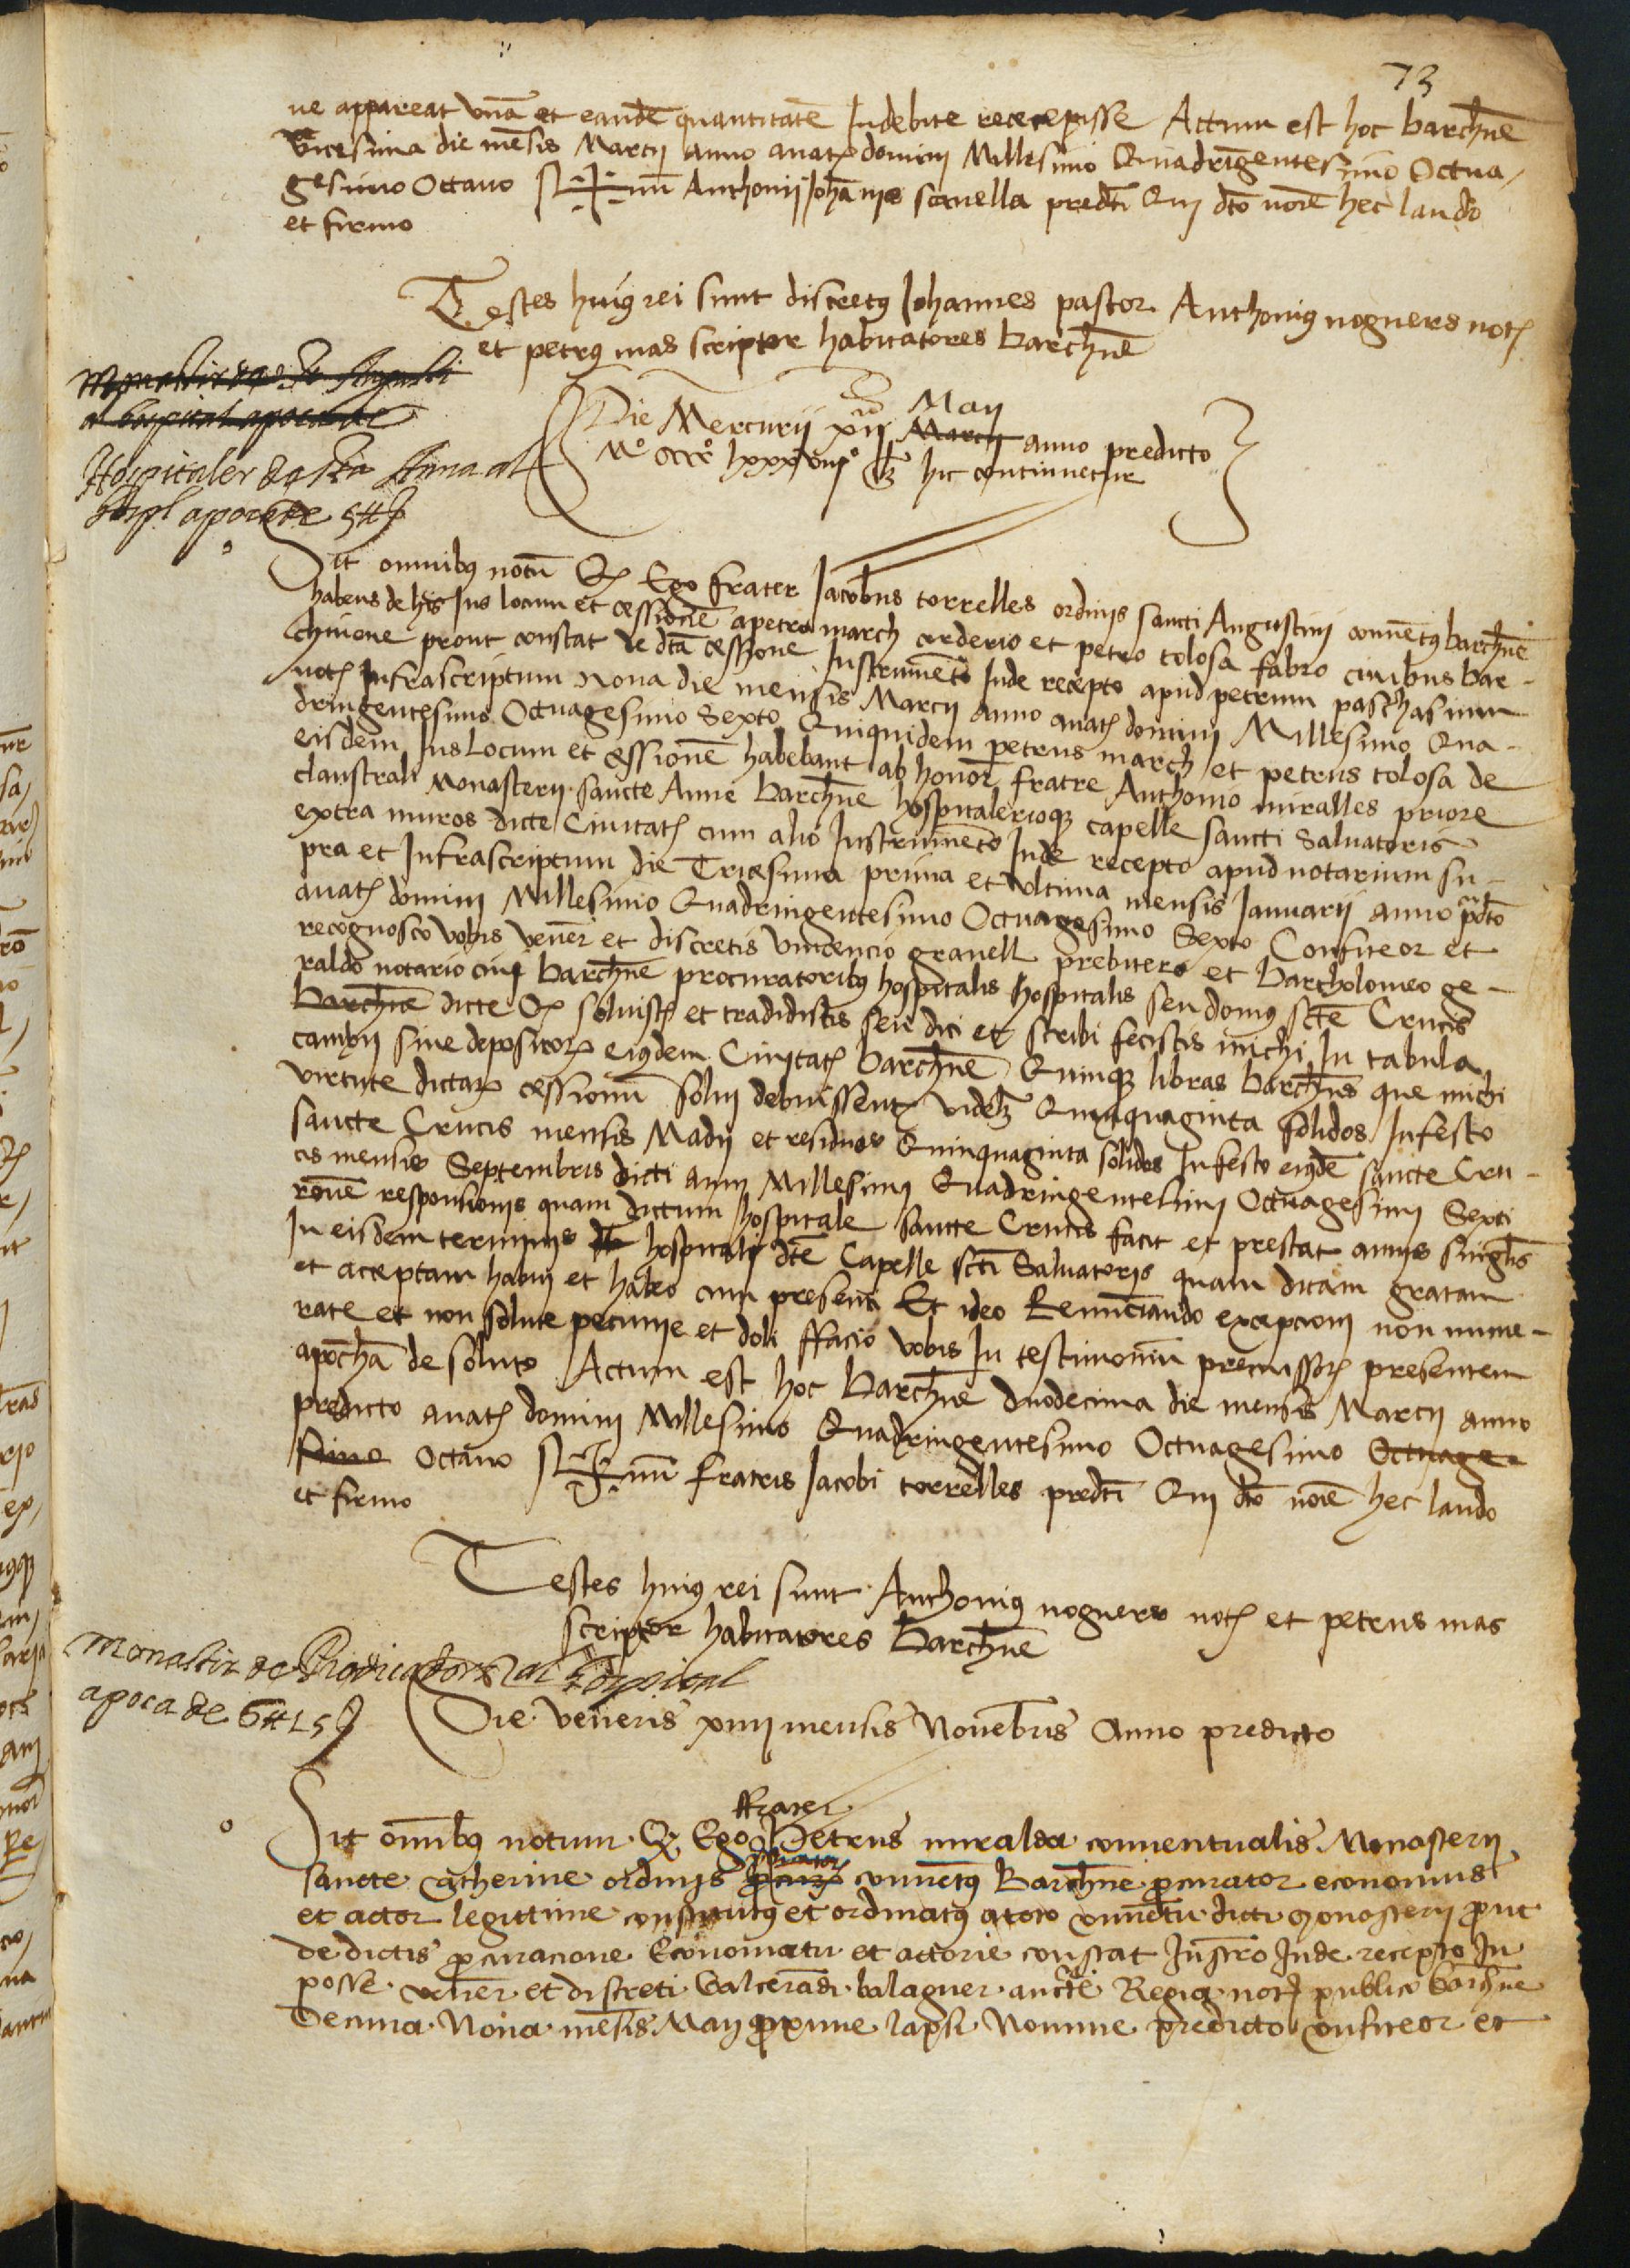 73
ne appareat vnã et eandẽ quantitatẽ Indebite recepisse Actum est hoc barchñe
vicesima die mẽsis Marcij anno a natꝭ domini Millesimo Quadringentesimo Octua/
gesimo Octauo S✠num Anthonij Johãnis scruella predcti Qui dcto noĩe hec laudo
et firmo
Testes huiꝰ rei sunt discretꝰ Johannes pastor Anthoniꝰ noguers notꝭ
et petrus mas scriptor habitatores barchñe
al hospital apoca de
Hospitaler de sta Anna al
hospl apoca de 5 ₶
Maij
Die Mercurij xij Marcij anno predicto
Mº CCCCº lxxxviijº hic continuetur
Sit omnibꝰ notũ Qꝫ Ego frater Jacobus torrelles ordinis sancti Augustini conuẽtꝰ barchñe
habens de his Ius locum et cessionẽ a petro march corderio et petro tolosa fabro ciuibus bar-
chinone prout constat de dcta cessione Instrumẽto Inde recepto apud petrum paschasium
notꝭ Infrascriptum nona die mensis Marcij anno a natꝭ domini Millesimo Qua-
dringentesimo Octuagesimo Sexto Quiquidem petrus march et petrus tolosa de
eisdem Ius Locum et cessionẽ habebant ab honorꝭ fratre Anthonio miralles priore
claustrali Monasterij sancte Anne barchñe hospitalerioqꝫ capelle sancti Saluatoris
extra muros dicte Ciuitatꝭ cum alio Instrumẽto Inde recepto apud notarium su-
pra et Infrascriptum die Tricesima prima et vltima mensis Januarij anno pdcto
a natꝭ domini Millesimo Quadringentesimo Octuagesimo Sexto Confiteor et
recognosco vobis veñer et discretis vincencio granell prebitero et bartholomeo ge-
raldo notario ciui barchñe procuratoribꝰ hospitalis hospitalis seu domus sctẽ Crucis
barchñe dicte Qꝫ soluistꝭ et tradidistis seu dici et scribi fecistis michi In tabula
cambij siue depositorꝫ eiusdem Ciuitatꝭ barchñe Quinqꝫ libras barchñs que michi
virtute dictarꝫ cessionũ solui debuissent videlꝫ Quinquaginta solidos In festo
sancte Crucis mensis Madij et residuos Quinquaginta solidos In festo eiusdẽ sancte Cru-
cis mensis Septembris dicti anni Millesimi Quadringentesimi Octuagesimi Sexti
rõnẽ responsionis quam dictum hospitale sancte Crucis facit et prestat annis singlis
In eisdem terminis hospitali dctẽ Capelle sctĩ Saluatoris quam dictam gratam
et acceptam habui et habeo cum presenti Et ideo Renunciando excepcioni non nume-
rate et non solute pecunie et doli ffacio vobis In testimoniũ premissorꝫ presentem
apochã de soluto Actum est hoc barchñe duodecima die mensis Marcij anno
predicto a natꝭ domini Millesimo Quadringentesimo Octuagesimo Octuage-
simo Octauo S✠num fratris Jacobi torrelles predctĩ Qui dcto noĩe hec laudo
et firmo
Testes huiꝰ rei sunt Anthoniꝰ noguers notꝭ et petrus mas
scriptor habitatores barchñe
Monastir de Predicadors al Hospital
apoca de 6 ₶ 15
Die veneris xiiij mensis Nouembris Anno predicto
ffrater
Sit omĩbꝰ notum Qꝫ Ego Petrus miralda conuentualis Monasterij
sancte catherine ordinis conuẽtꝰ Barchñe procurator economus
et actor legittime constitutꝰ et ordinatꝰ a toto conuẽtu dicti monasterij prout
de dictis procuracione Economatu et actorie constat Instro Inde recepto In
posse veñer et discreti Galcerandi balaguer aucte Regia notꝭ publico barchñe
Decima Nona mẽsis Maij proxime lapsi Nomine predicto confiteor et